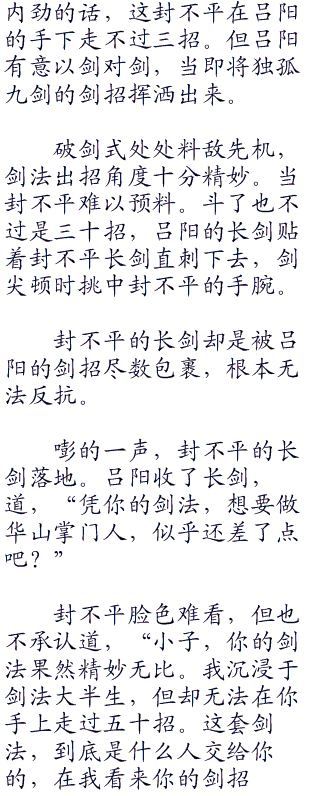 内劲的话，这封不平在吕阳
的手下走不过三招。但吕阳
有意以剑对剑，当即将独孤
九剑的剑招挥洒出来。
破剑式处处料敌先机，
剑法出招角度十分精妙。当
封不平难以预料。斗了也不
过是三十招，吕阳的长剑贴
着封不平长剑直刺下去，剑
尖顿时挑中封不平的手腕。
封不平的长剑却是被吕
阳的剑招尽数包裹，根本无
法反抗。
嘭的一声，封不平的长
剑落地。吕阳收了长剑，
道，“凭你的剑法，想要做
华山掌门人，似乎还差了点
吧？”
封不平脸色难看，但也
不承认道，“小子，你的剑
法果然精妙无比。我沉浸于
剑法大半生，但却无法在你
手上走过五十招。这套剑
法，到底是什么人交给你
的，在我看来你的剑招